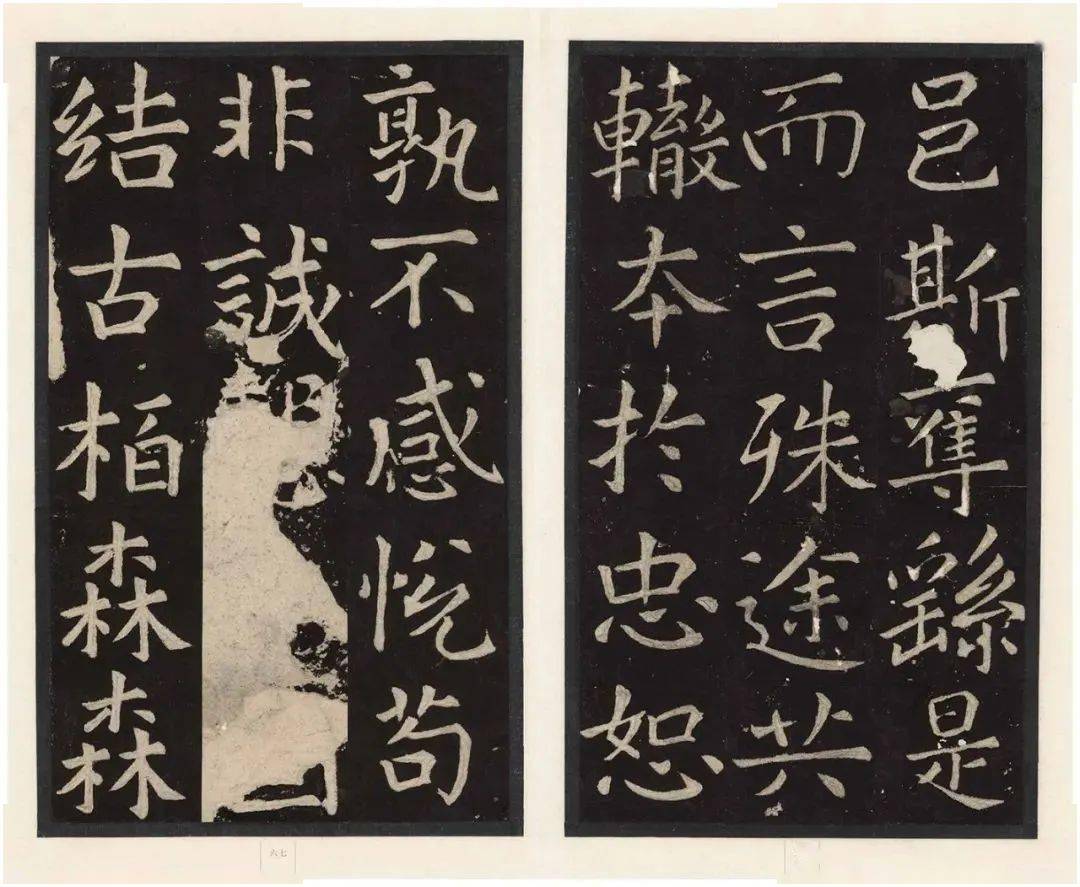 邑斯奪繇是
而言殊途共
轍本於忠恕
孰不感悦苟
非誠
结古柏森森
六七